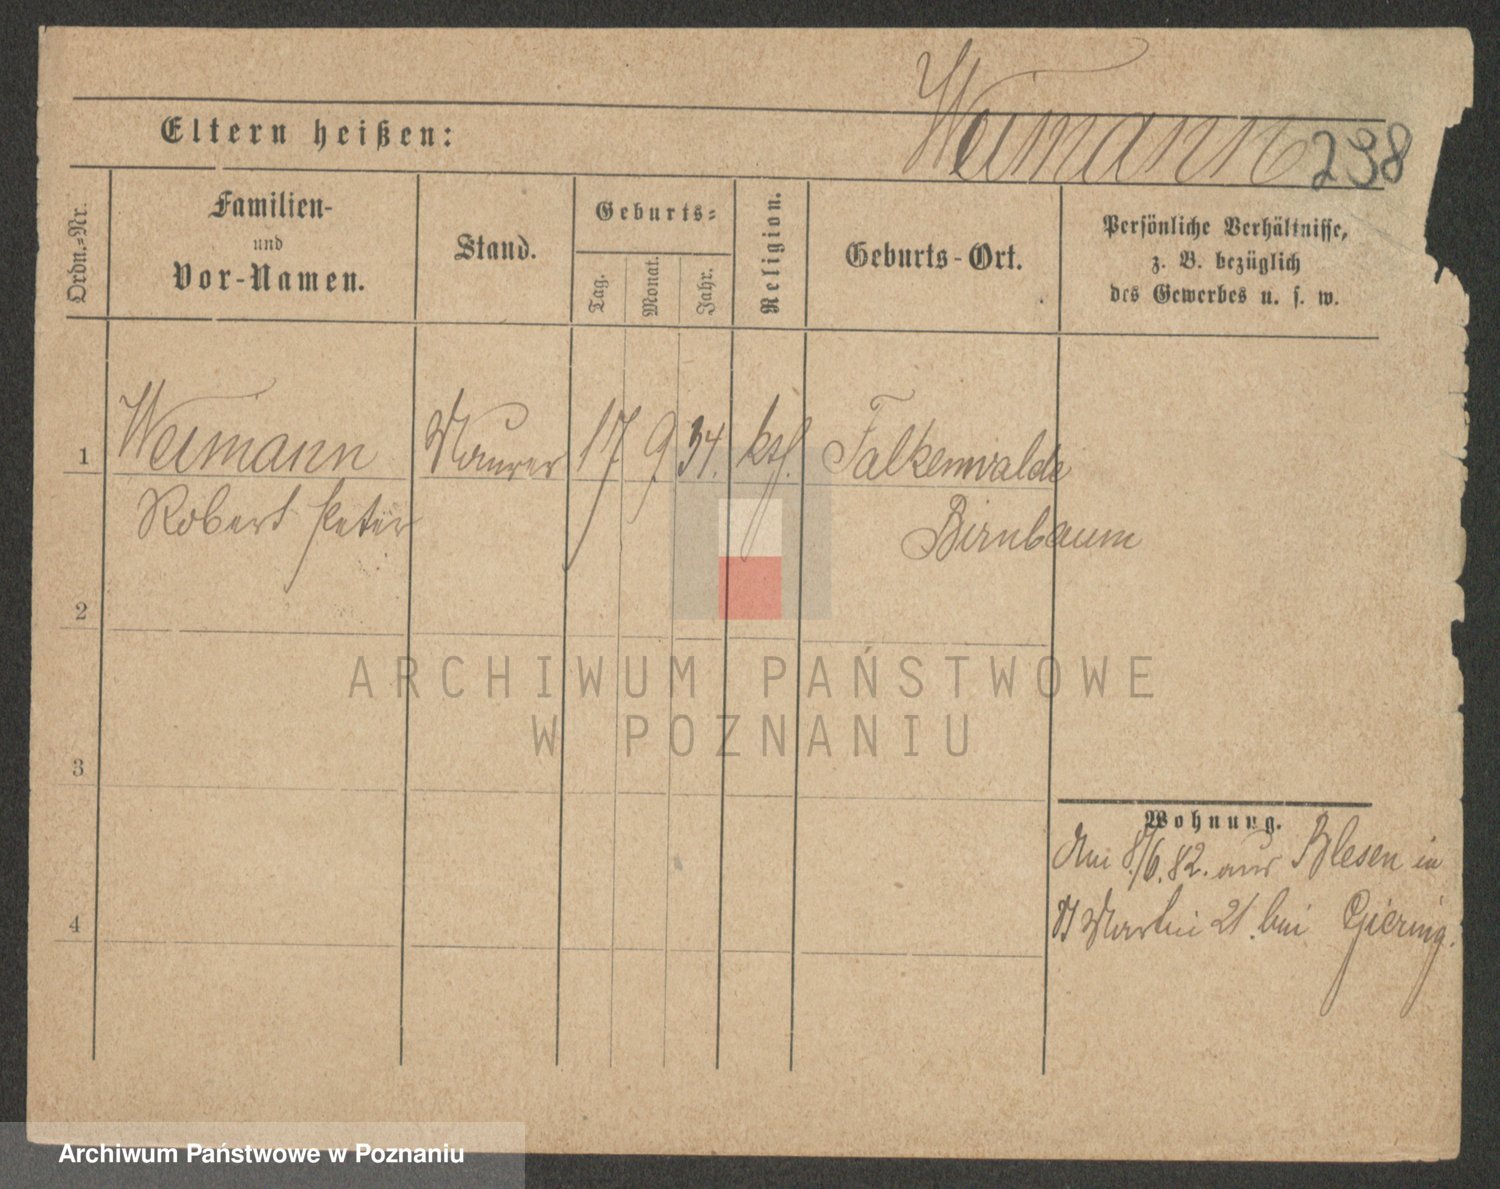 Weimann 238
Eltern heißen:
Ordn.-Nr.
Familien-
und
Vor-Namen.
Stand.
Geburts-
Tag.
Monat.
Jahr.
Religion.
Geburts-Ort.
Persönliche Verhältnisse,
z. B. bezüglich
des Gewerbes u. s. w.
1 Weimann Maurer 17 9 34. ktl. Falkenwalde
Robert Peter Birnbaum
2
3
4
Wohnung.
Am 8./6.82. aus Blesen in
St Martin 21. bei Giering.
ARCHIWUM PAŃSTWOWE
W POZNANIU
Archiwum Państwowe w Poznaniu